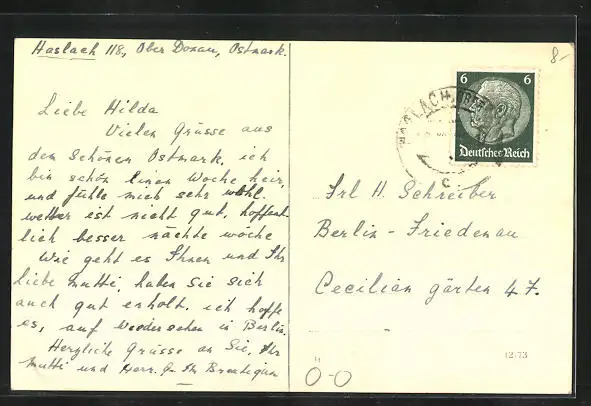 Haslach 118, Ober Donau, Ostmark.
Liebe Hilda
Vielen Grüsse aus
den schönen Ostmark, ich
bin schön einen woche heir,
und fühle mich sehr wohl.
wetter ist nicht gut, hoffent
lich besser nächte wöche
Wie geht es Ihnen und Ihr
liebe mutti, haben Sie sich
auch gut erholt. ich hoffe
es, auf wiedersehen in Berlin.
Herzliche Grüsse an Sie, Ihr
Mutti und Herr.
6 6
Deutsches Reich
Frl H. Schreiber
Berlin - Friedenau
Cecilien gärten 47.
12/73
0-0
8-